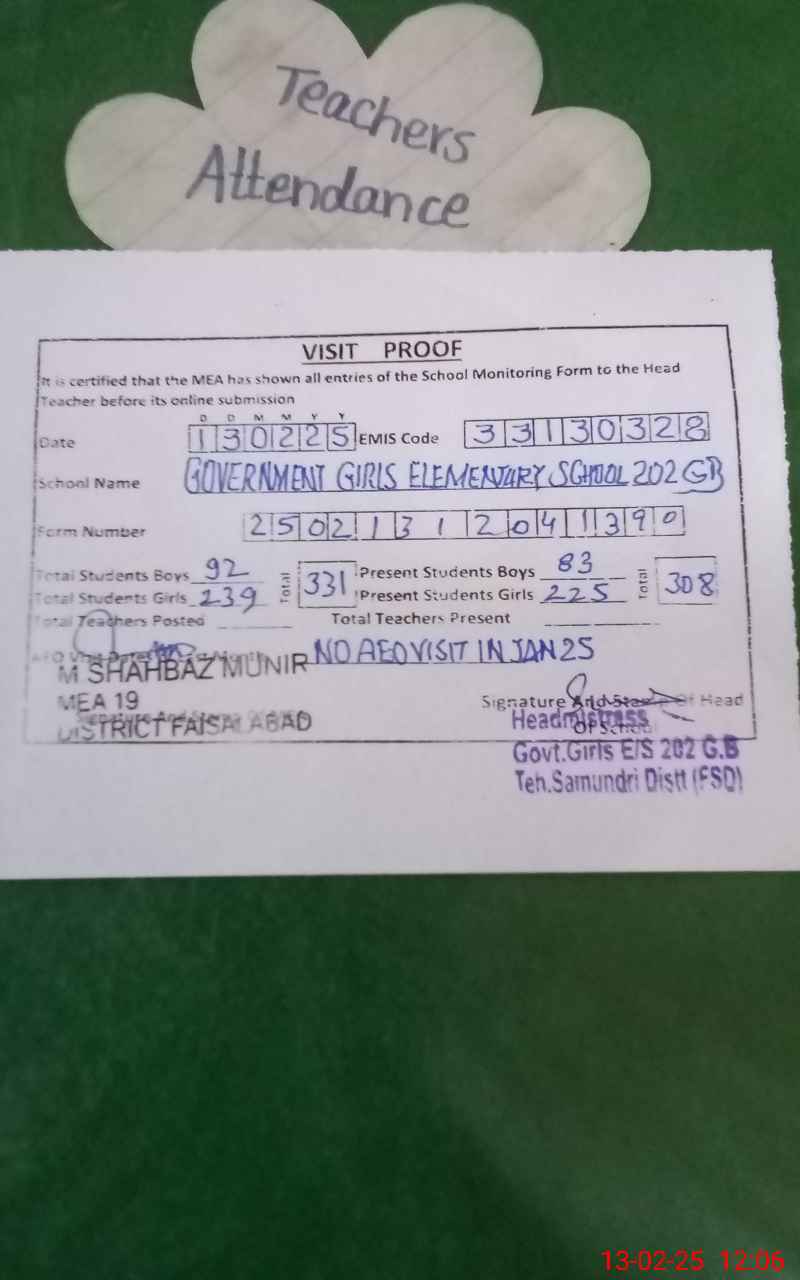 Teachers
Attendance
VISIT PROOF
It is certified that the MEA has shown all entries of the School Monitoring Form to the Head
Teacher before its online submission
D D M M Y Y
Date 130225 EMIS Code 33130328
School Name GOVERNMENT GIRLS ELEMENTARY SCHOOL 202 GB
Form Number 25021312041390
Total Students Boys 92 Total 331 Present Students Boys 83 Total 308
Total Students Girls 239 Present Students Girls 225
Total Teachers Posted Total Teachers Present
NO AEO VISIT IN JAN 25
M SHAHBAZ MUNIR
MEA 19
DISTRICT FAISALABAD
Signature And Stamp Of Head
Of School
Headmistress
Govt.Girls E/S 202 G.B
Teh.Samundri Distt (FSD)
13-02-25 12:06